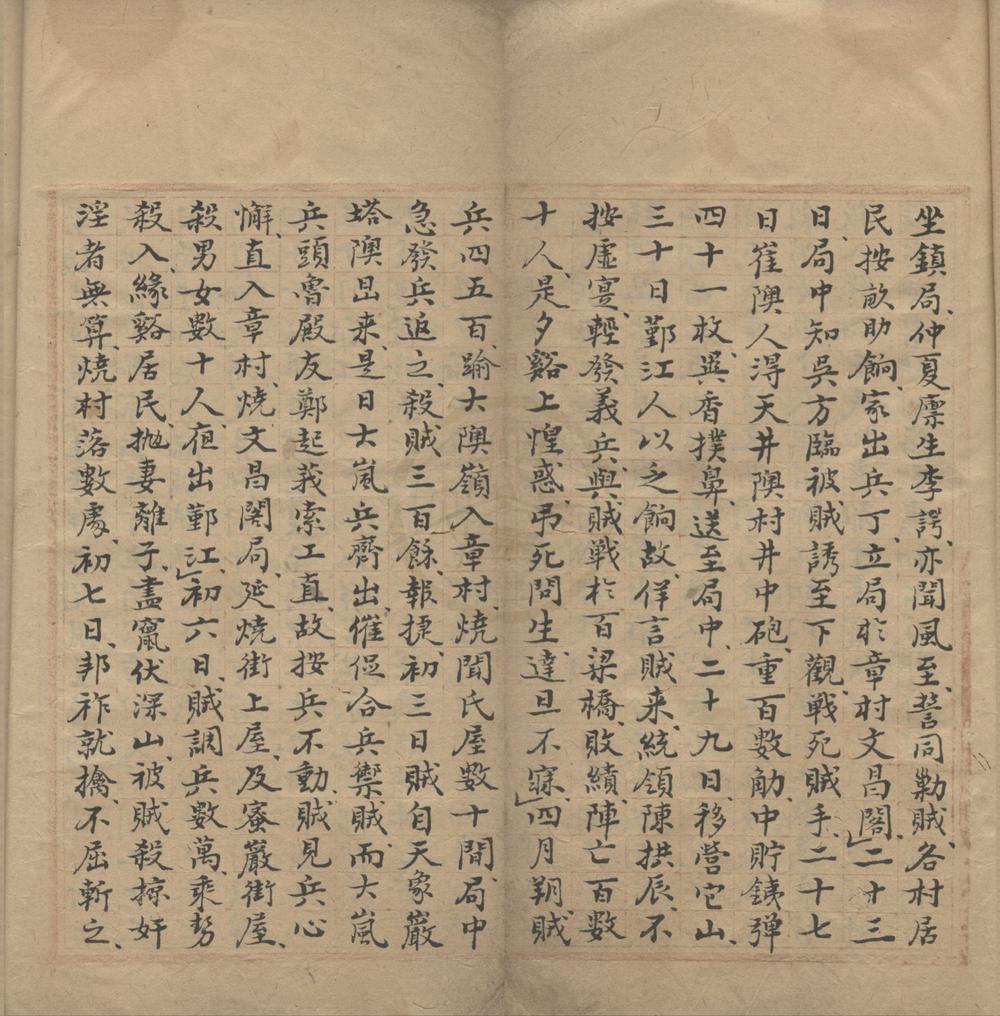 坐鎮局、仲夏廪生李諤、亦聞風至、誓同勦賊、各村居
民按畝助餉、家出兵丁、立局於章村文昌閣、二十三
日、局中知吳方臨被賊誘至下觀、戰死賊手、二十七
日崔隩人淂天井隩村井中砲、重百數觔、中貯銕弹
四十一枚、異香撲鼻、送至局中、二十九日、移營它山、
三十日鄞江人以乏餉故、佯言賊来、統領陳拱辰、不
按虛寔、輕發義兵、與賊戦於百梁橋、敗績、陣亡百數
十人、是夕谿上惶惑、弔死問生、達旦不寐、四月朔賊
兵四五百、踰大隩嶺入章村、燒聞氏屋數十間、局中
急發兵返之、殺賊三百餘、報捷、初三日賊自天象巖
塔隩昷来、是日大嵐兵齊出、催侸合兵禦賊、而大嵐
兵頭魯殿友鄭起莪索工直、故按兵不動、賊見兵心
懈、直入章村、燒文昌閣局、延燒街上屋、及蜜巖街屋、
殺男女數十人、夜出鄞江、初六日、賊調兵數萬、乘势
殺入、緣谿居民、抛妻離子、盡竄伏深山、被賊殺掠奸
淫者無算、燒村落數處、初七日、邦祚就擒、不屈斬之、